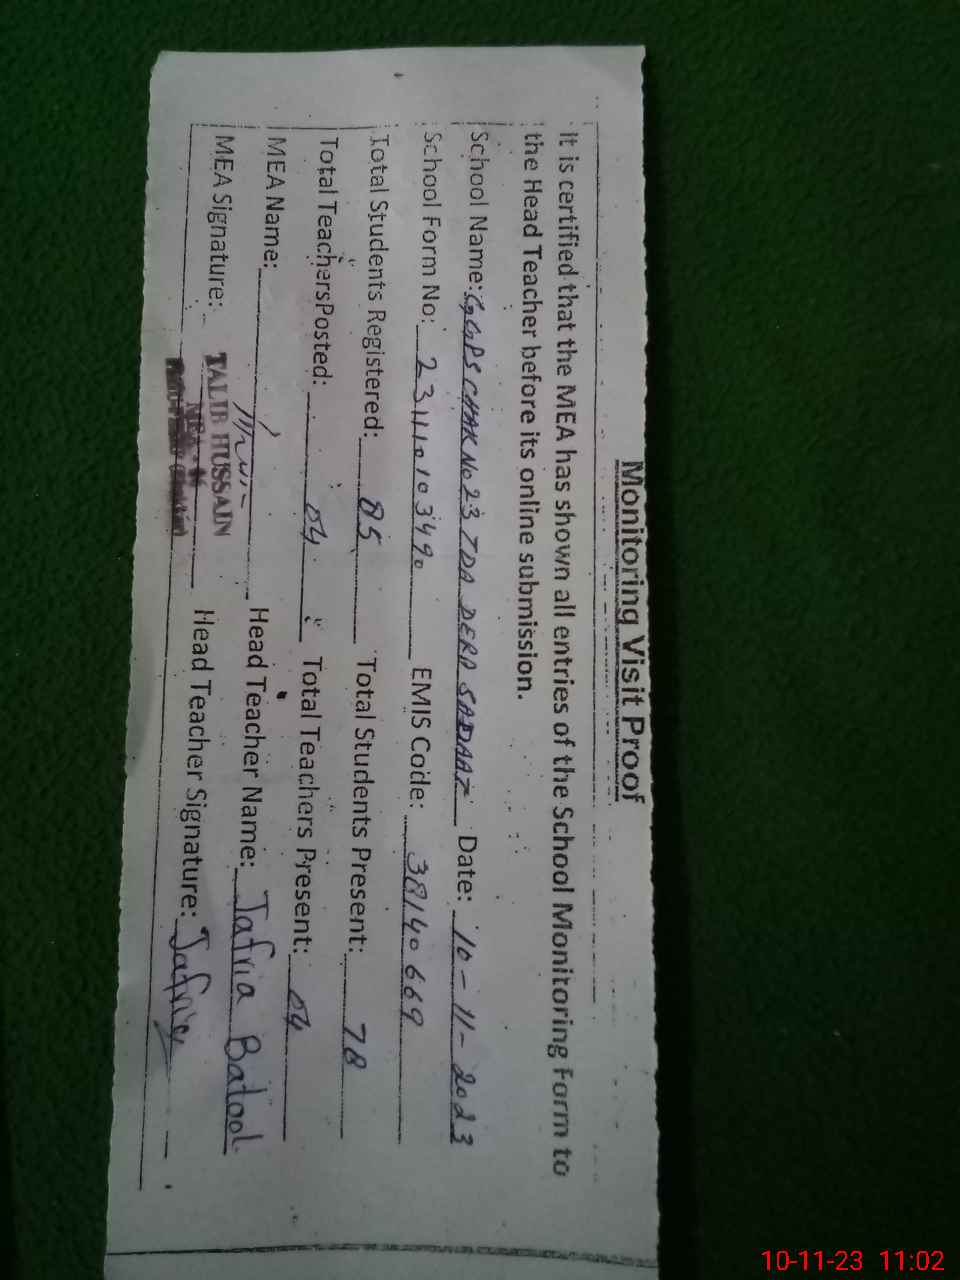 Monitoring Visit Proof
It is certified that the MEA has shown all entries of the School Monitoring Form to
the Head Teacher before its online submission.
School Name: GGPS CHAK No 23 TDA DERA SADAAT Date: 10-11-2023
School Form No: 23111010349 EMIS Code: 38140669
Total Students Registered: 85 Total Students Present: 78
Total Teachers Posted: 04 Total Teachers Present: 04
MEA Name: Head Teacher Name: Jafria Batool
MEA Signature: TALIB HUSSAIN Head Teacher Signature: Jafria
MEA
10-11-23 11:02